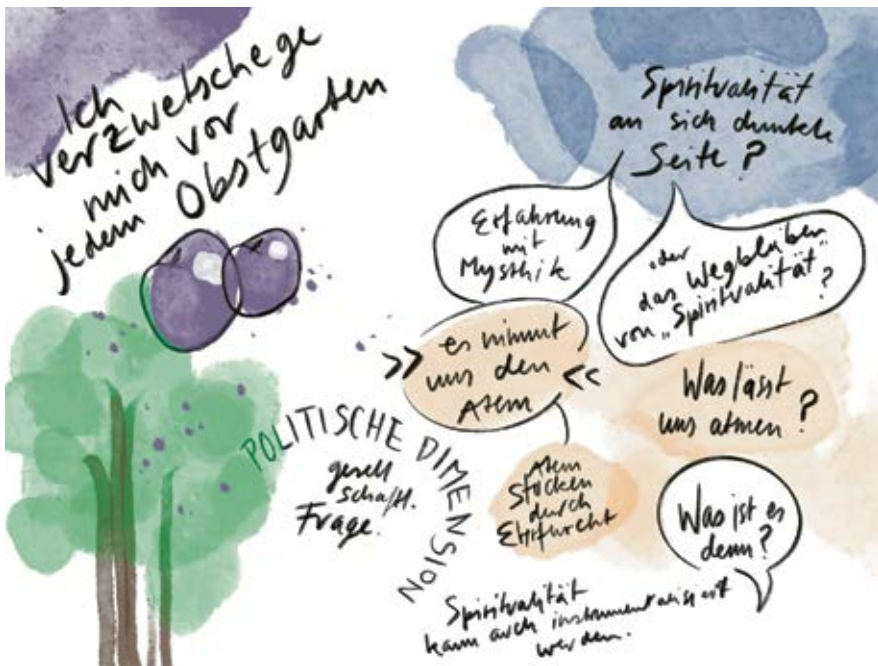 Ich
verzwetschege
mich vor
jedem Obstgarten
Spiritualität
an sich dunkle
Seite?
Erfahrung
mit
Mysthik
oder
das Wegbleiben
von „Spiritualität“
?
>> es nimmt
uns den
Atem <<
Was lässt
uns atmen?
POLITISCHE DIMENSION
gesell
schaftl.
Frage.
Atem
Stocken
durch
Ehrfurcht
Was ist es
denn?
Spiritualität
kann auch instrumentalisiert
werden.